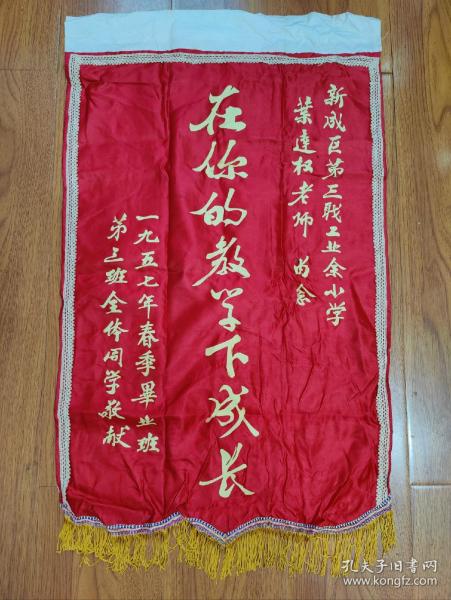 新成区第三职工业余小学
葉達权老师 尚念
在你的教学下成长
一九五七年春季畢业班
第三班全体同学敬献
孔夫子旧书网
www.kongfz.com